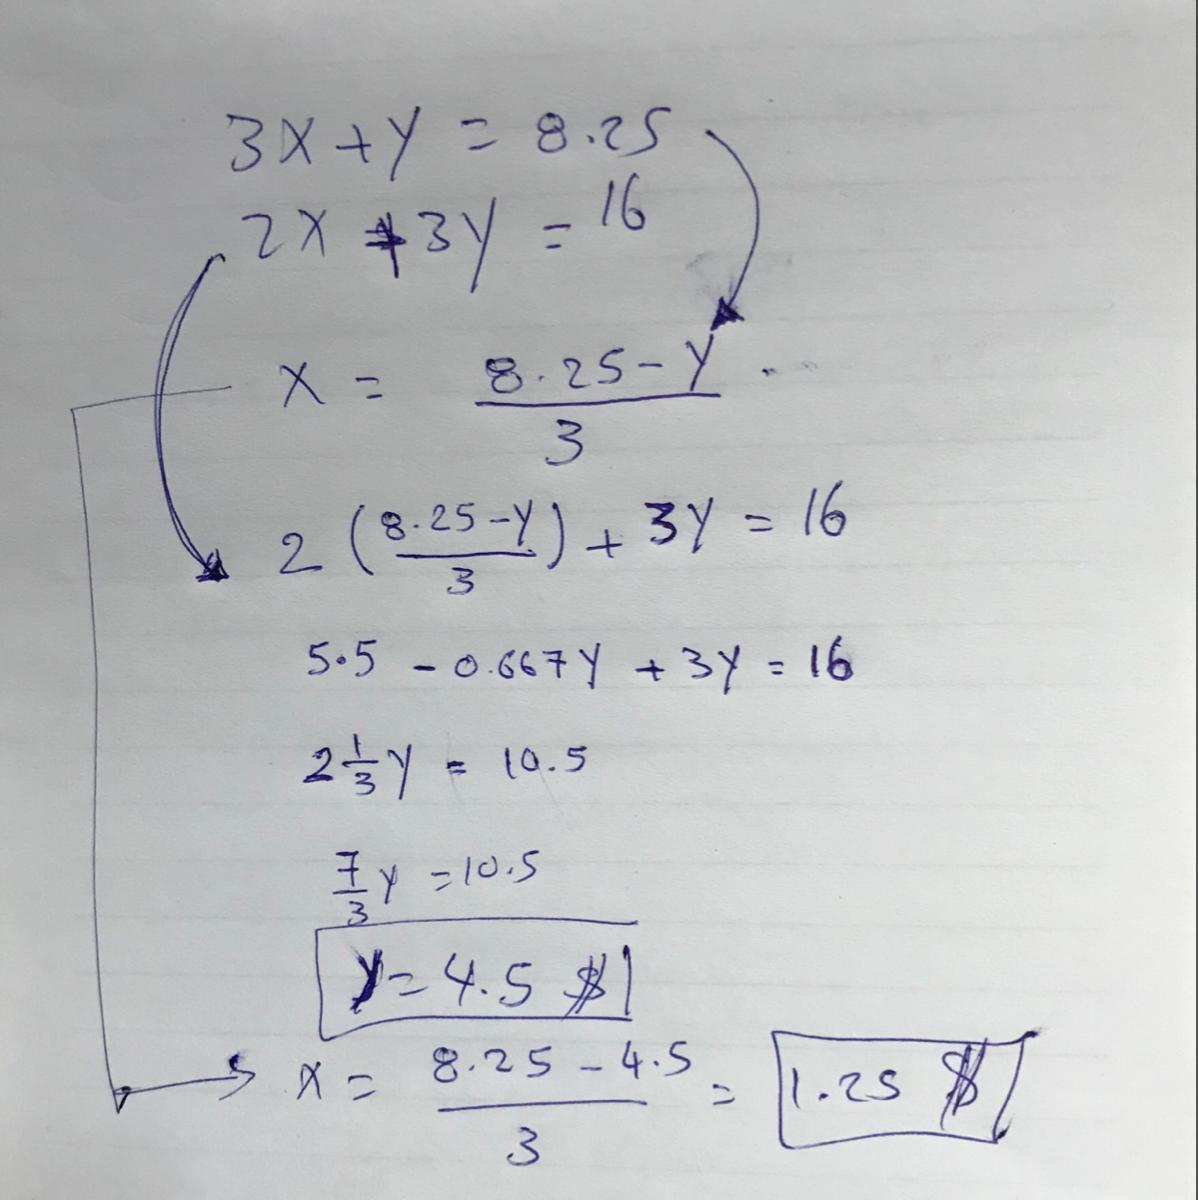 3X + Y = 8.25
2X + 3Y = 16
X = (8.25 - Y) / 3
2 ((8.25 - Y) / 3) + 3Y = 16
5.5 - 0.667Y + 3Y = 16
2 1/3 Y = 10.5
7/3 Y = 10.5
Y = 4.5 $
X = (8.25 - 4.5) / 3 = 1.25 $